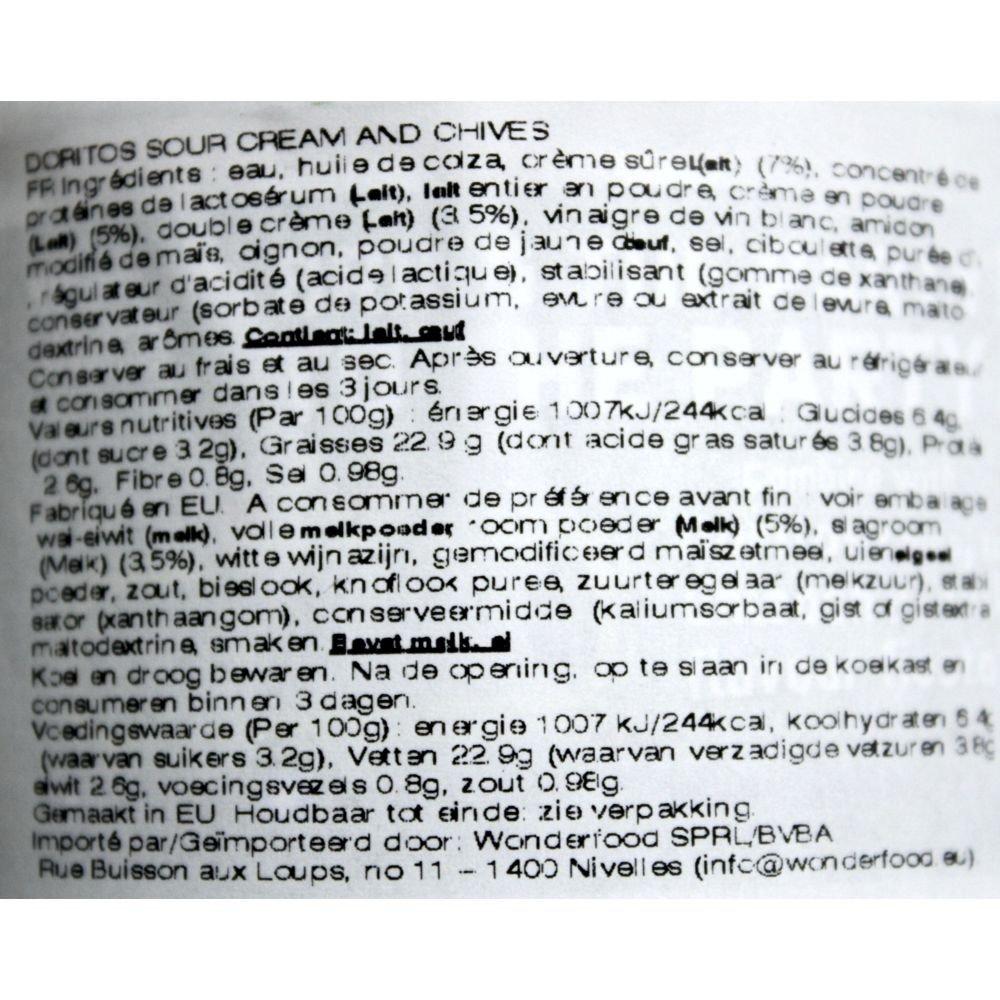 DORITOS SOUR CREAM AND CHIVES
FR Ingrédients : eau, huile de colza, crème sûre (Lait) (7%), concentré de
protéines de lactosérum (Lait), lait entier en poudre, crème en poudre
(Lait) (5%), double crème (Lait) (3.5%), vin aigre de vin blanc, amidon
modifié de maïs, oignon, poudre de jaune d'œuf, sel, ciboulette, purée d'
, régulateur d'acidité (acide lactique), stabilisant (gomme de xanthane),
conservateur (sorbate de potassium, levure ou extrait de levure, malto
dextrine, arômes. Contient: lait, œuf
Conserver au frais et au sec. Après ouverture, conserver au réfrigérateur
et consommer dans les 3 jours.
Valeurs nutritives (Par 100g) : énergie 1007kJ/244kcal : Glucides 6.4g,
(dont sucre 3.2g), Graisses 22.9 g (dont acide gras saturés 3.8g), Proté
2.6g, Fibre 0.8g, Sel 0.98g.
Fabriqué en EU. A consommer de préférence avant fin : voir embalage
wei-eiwit (melk), volle melkpoeder, room poeder (Melk) (5%), slagroom
(Melk) (3,5%), witte wijnazijn, gemodificeerd maïszetmeel, uien, eigeel
poeder, zout, bieslook, knoflook puree, zuurteregelaar (melkzuur), stabi
sator (xanthaangom), conserveermidde (kaliumsorbaat, gist of gistextra
maltodextrine, smaken. Bevat melk, ei
Koel en droog bewaren. Na de opening, op te slaan in de koelkast en
consumeren binnen 3 dagen.
Voedingswaarde (Per 100g) : energie 1007 kJ/244kcal, koolhydraten 6.4g
(waarvan suikers 3.2g), Vetten 22.9g (waarvan verzadigde vetzuren 3.8g
eiwit 2.6g, voedingsvezels 0.8g, zout 0.98g.
Gemaakt in EU Houdbaar tot einde: zie verpakking.
Importé par/Geïmporteerd door: Wonderfood SPRL/BVBA
Rue Buisson aux Loups, no 11 – 1400 Nivelles (info@wonderfood.eu)